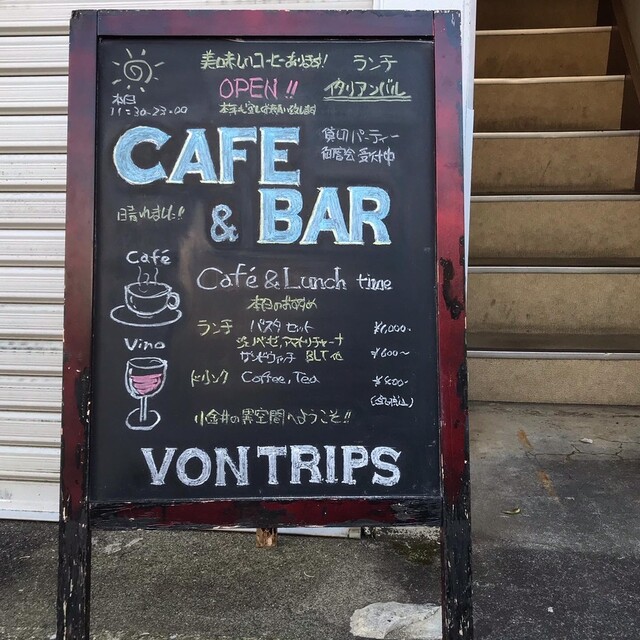 美味しいコーヒーあります! ランチ
OPEN!! イタリアンバル
本日
11:30-23:00
CAFE
貸切パーティー
受付中
& BAR
晴れました!!
Café
Café & Lunch time
本日のおすすめ
ランチ パスタセット ¥1,000-
ジェノベーゼ, アマトリチャーナ
サンドウィッチ BLT
Vino
ドリンク Coffee, Tea
(全て税込)
小金井の異空間へようこそ!!
VONTRIPS